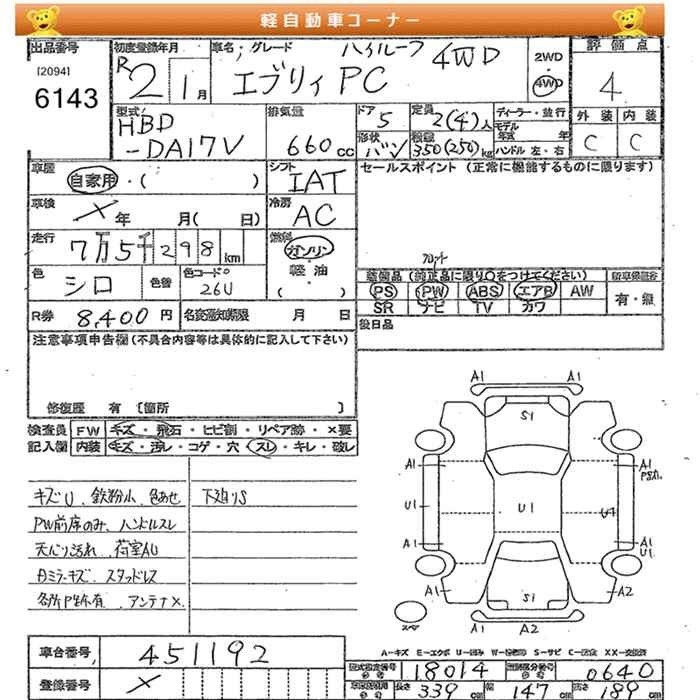 軽自動車コーナー
出品番号
[2094]
6143
初度登録年月
R2 1月
車名・グレード
ハイルーフ
エブリィ PC 4WD
2WD
4WD
評価点
4
外装 内装
C C
型式
HBD
-DA17V
排気量
660cc
ドア 5
定員 2(4)人
形状 バン
積量 350(250)kg
ディーラー・並行
モデル年式 年
ハンドル 左・右
車歴
自家用・( )
シフト
IAT
車検
× 年 月( 日)
冷房
AC
走行
7万5千298km
燃料
ガソリン
軽・油
( )
色
シロ
色替
色コード
26U
R券 8,400円
名変通知期限 月 日
セールスポイント(正常に機能するものに限ります)
フロント
装備品(純正品に限り○をつけてください)
PS PW ABS エアB AW
SR ナビ TV カワ
新車保証書
有・無
後日品
注意事項申告欄(不具合内容等は具体的に記入して下さい)
修復歴 有 〔箇所 〕
検査員 FW キズ・飛石・ヒビ割・リペア跡・×要
記入欄 内装 キズ・汚レ・コゲ・穴・スレ・キレ・破レ
キズU、鉄粉小、色あせ 下廻りS
PW前席のみ、ハンドルスレ
天バリ汚れ、荷室AU
スタッドレス
アンテナ×
A1 A1
S1
A1 A1
U1 U1 U1
A1 A1
U1
A2 A2
S1
A1 A2
A-キズ E-エクボ U-凹み W-補修跡 S-サビ C-腐食 XX-交換済
車台番号 451192
登録番号 ×
型式指定番号 18014
類別区分番号 0640
長さ 339cm
幅 147cm
高さ 189cm